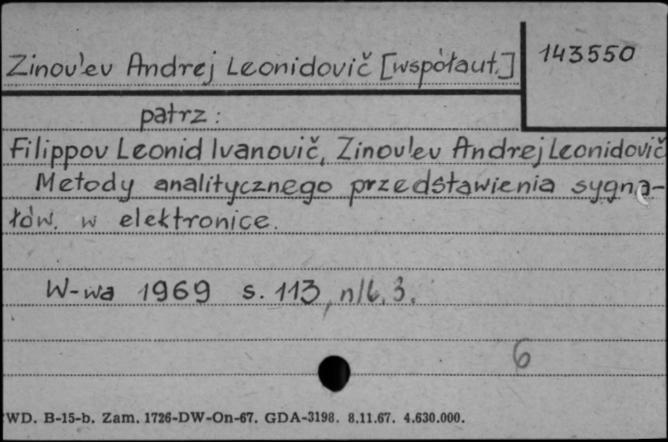 Zinov'ev Andrej Leonidovič [współaut.]
143550
patrz:
Filippov Leonid Ivanovič, Zinov'ev Andrej Leonidovič
Metody analitycznego przedstawienia sygna-
łów. w elektronice.
W-wa 1969 s. 113, nlb. 3.
6
WD. B-15-b. Zam. 1726-DW-On-67. GDA-3198. 8.11.67. 4.630.000.